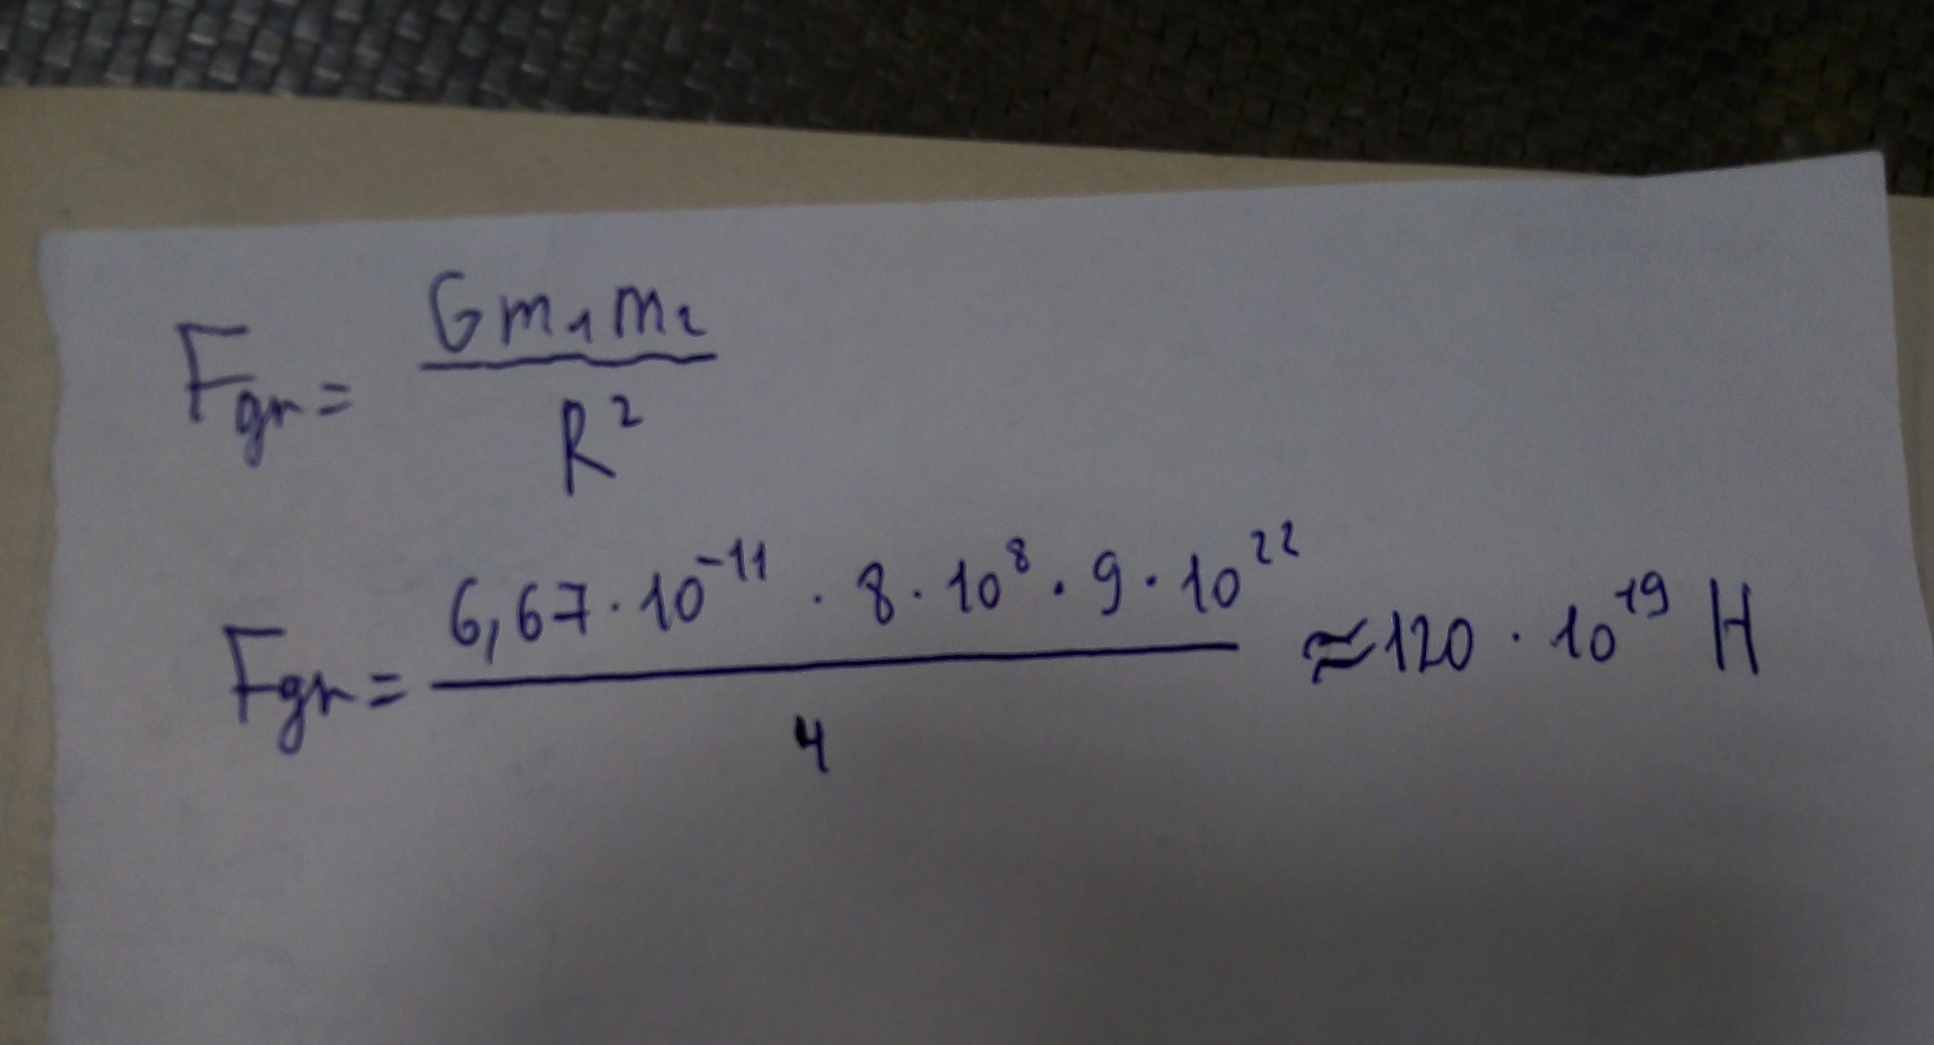 Fgr = Gm₁m₂ / R²
Fgr = 6,67·10⁻¹¹ · 8·10⁸ · 9·10²² / 4 ≈ 120 · 10¹⁹ H